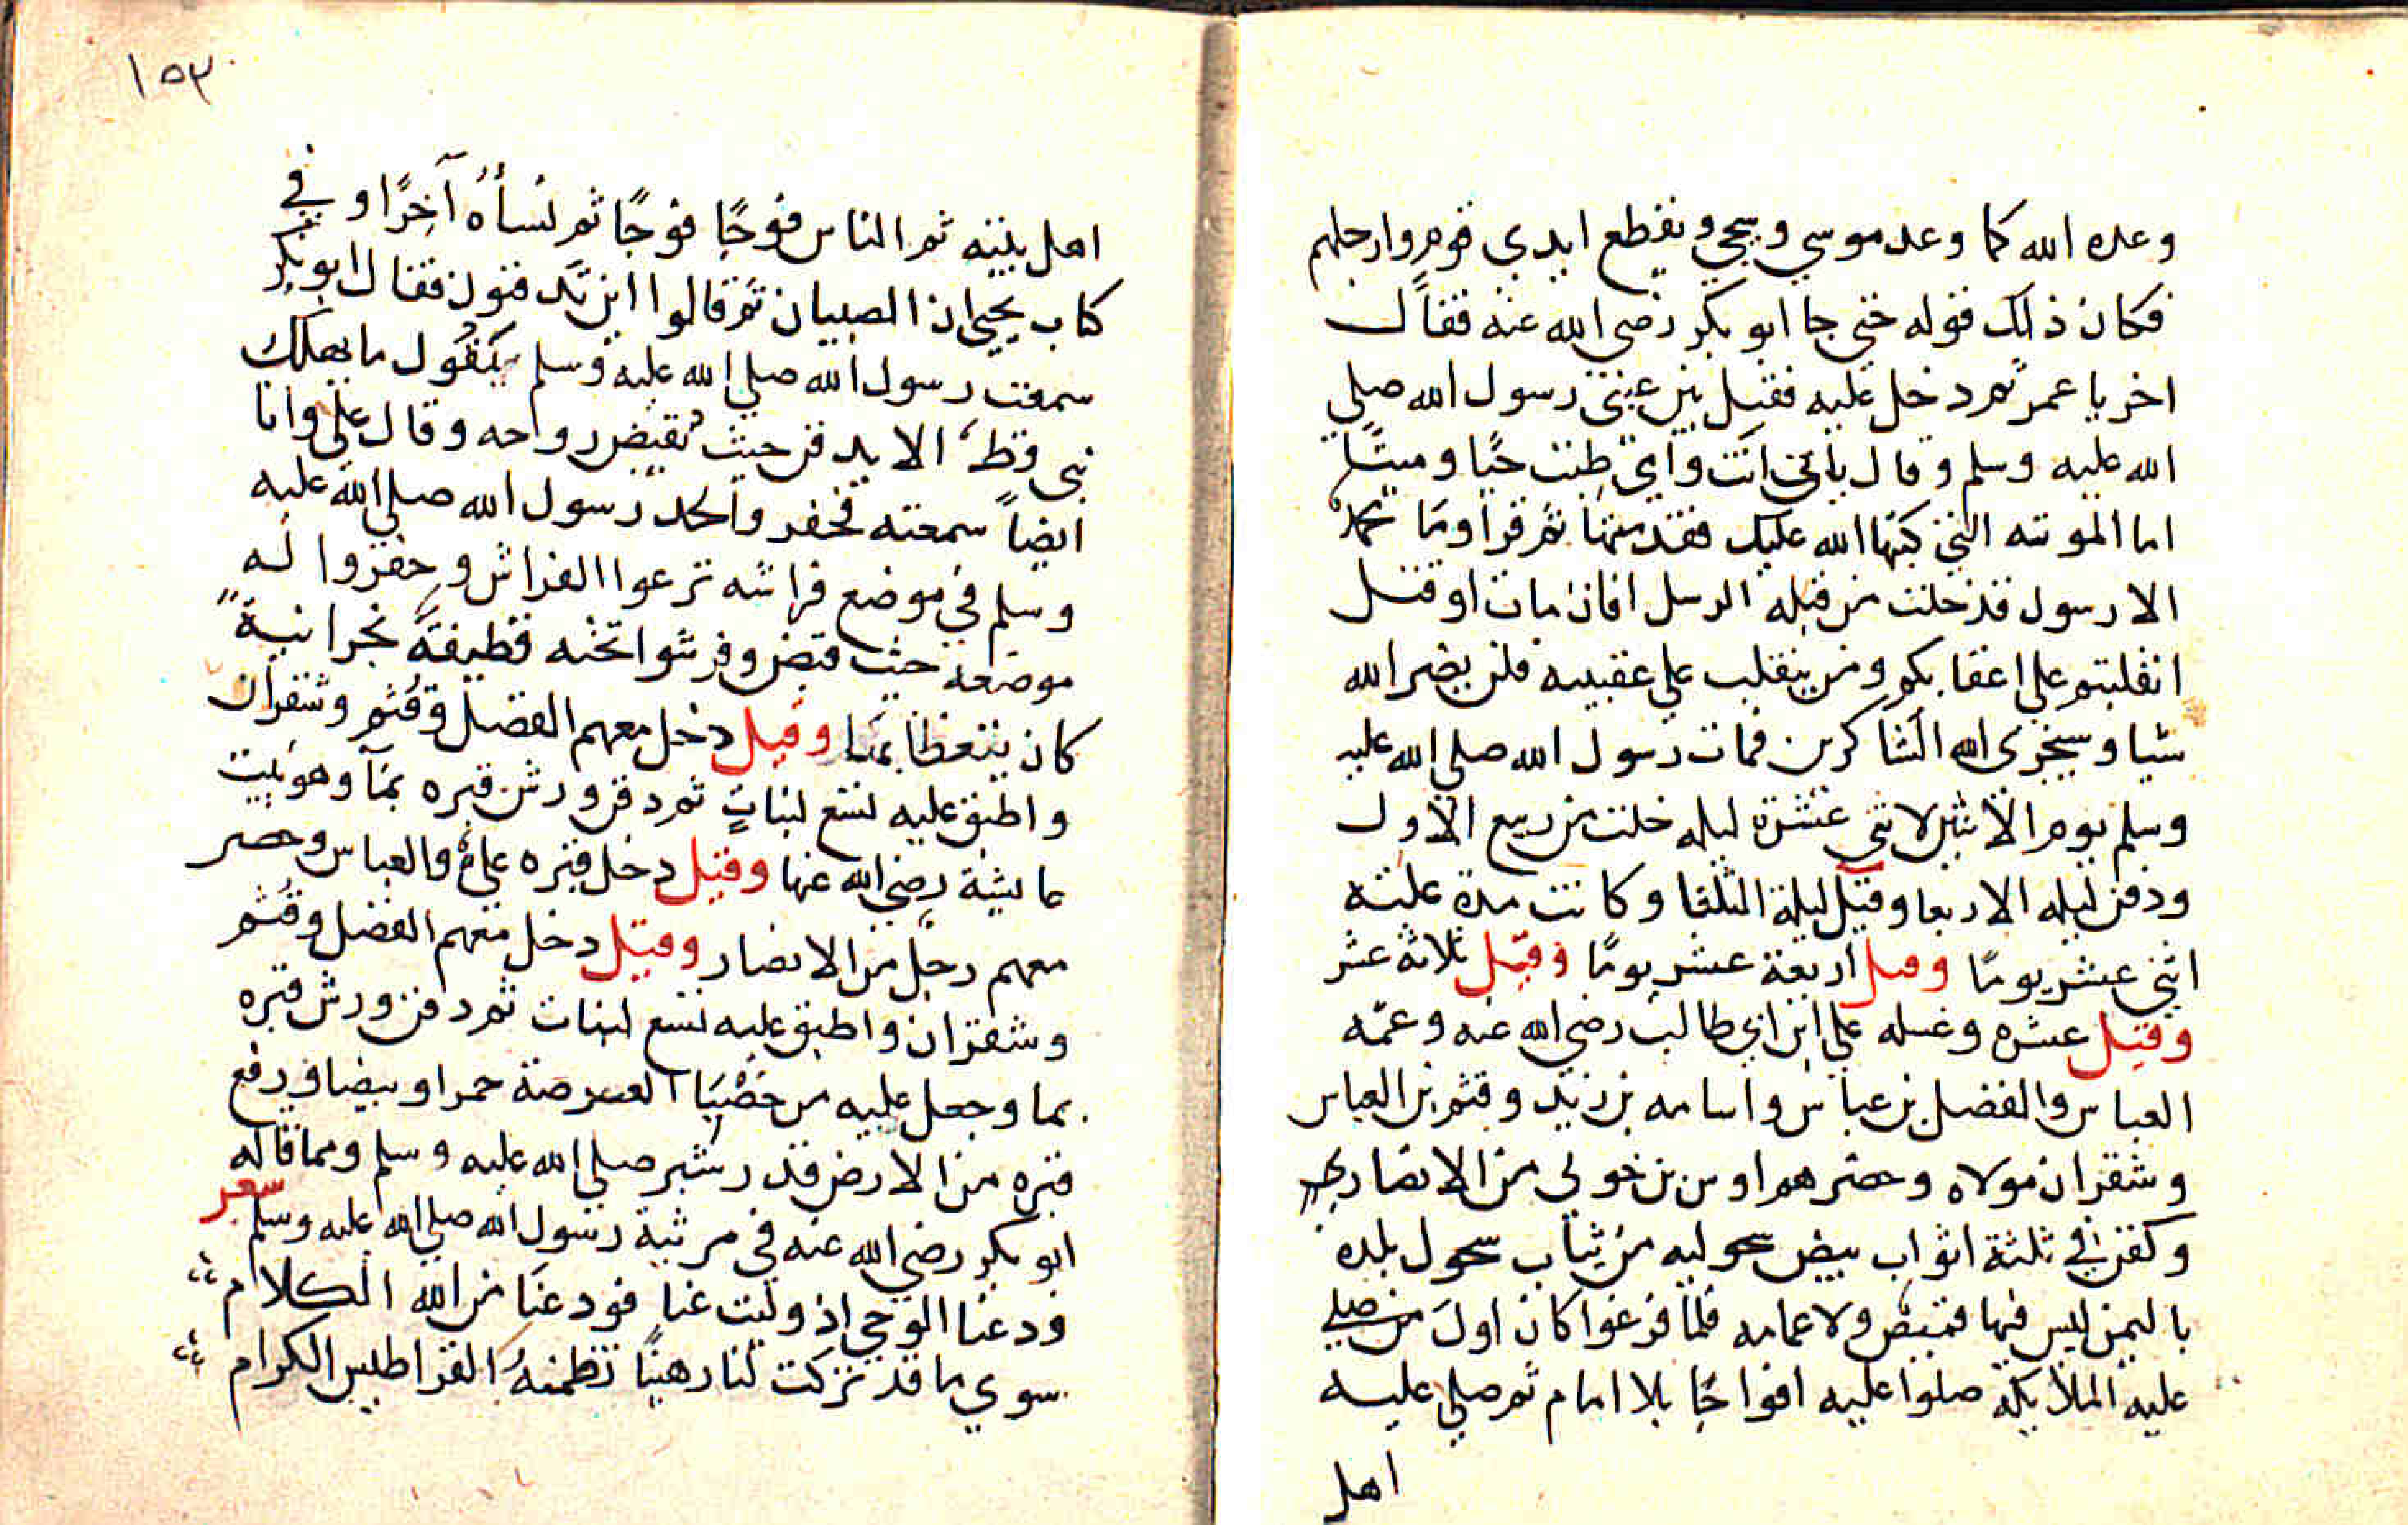 وعده الله كما وعد موسي ويجي ويقطع ايدي قوم وارجلهم
فكان ذلك قوله حتي جا ابو بكر رضي الله عنه فقال
اخر يا عمر ثم دخل عليه فقبل بين عيني رسول الله صلي
الله عليه وسلم وقال بابي انت وامي طبت حيا وميتا
اما الموته التي كتبها الله عليك فقد متها ثم قرا وما محمد
الا رسول قد خلت من قبله الرسل افان مات او قتل
انقلبتم علي اعقابكم ومن ينقلب علي عقبيه فلن يضر الله
شيا وسيجزي الله الشاكرين فمات رسول الله صلي الله عليه
وسلم يوم الاثنين لاثني عشرة ليله خلت من ربيع الاول
ودفن ليله الاربعا وقيل ليلة الثلثا وكانت مدة علته
اثني عشر يومًا وقيل اربعة عشر يومًا وقيل ثلاثة عشر
وقيل عشره وغسله علي ابن ابي طالب رضي الله عنه وعمّه
العباس والفضل بن عباس واسامه بن زيد وقثم بن العباس
وشقران مولاه وحضرهم اوس بن خولي من الانصاري
وكفن في ثلثة اثواب بيض سحوليه من ثياب سحول بلده
باليمن ليس فيها قميص ولا عمامه فلما فرغوا كان اول من صلي
عليه الملايكة صلوا عليه افواجًا بلا امام ثم صلي عليه
اهل
١٥٣
اهل بيته ثم الناس فوجًا فوجًا ثم نسأه آخرًا وفي
كتاب يحيي ان الصبيان ثم قالوا اين تدفنون فقال ابو بكر
سمعت رسول الله صلي الله عليه وسلم يقول ما يهلك
نبي قط الا يدفن حيث تقبض رواحه وقال علي وانا
ايضاً سمعته فحفر والحد رسول الله صلي الله عليه
وسلم في موضع فراشه نزعوا الفراش وحفروا له
موضعه حيث قبض وفرشوا تحته قطيفة نجرانية
كان يتغطا بها وقيل دخل معهم الفضل وقثم وشقران
واطبق عليه تسع لبنات ثم دفن ورش قبره بمآ وهو ببيت
عايشة رضي الله عنها وقيل دخل قبره علي والعباس وحضر
معهم رجل من الانصار وقيل دخل معهم الفضل وقثم
وشقران واطبق عليه تسع لبنات ثم دفن ورش قبره
بما وجعل عليه من حصبآ العرصة حمرا وبيضا ورفع
قبره من الارض قدر شبر صلي الله عليه وسلم ومما قاله
ابو بكر رضي الله عنه في مرثية رسول الله صلي الله عليه وسلم شعر
ودعنا الوحي اذ وليت عنا فودعنا من الله الكلام
سوي ما قد تركت لنا رهينًا تظمنهُ القراطيس الكرام